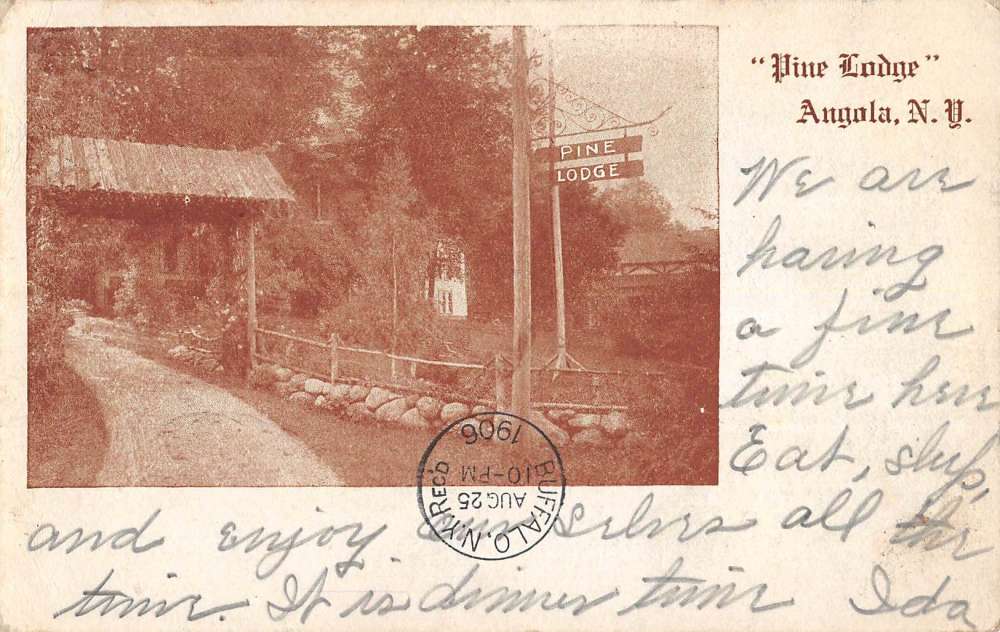 "Pine Lodge"
Angola, N. Y.
PINE
LODGE
We are
having
a fine
time here
Eat, sleep,
and enjoy ourselves all the
time. It is dinner time Ida
BUFFALO, N.Y. REC'D
AUG 25
10-PM
1906